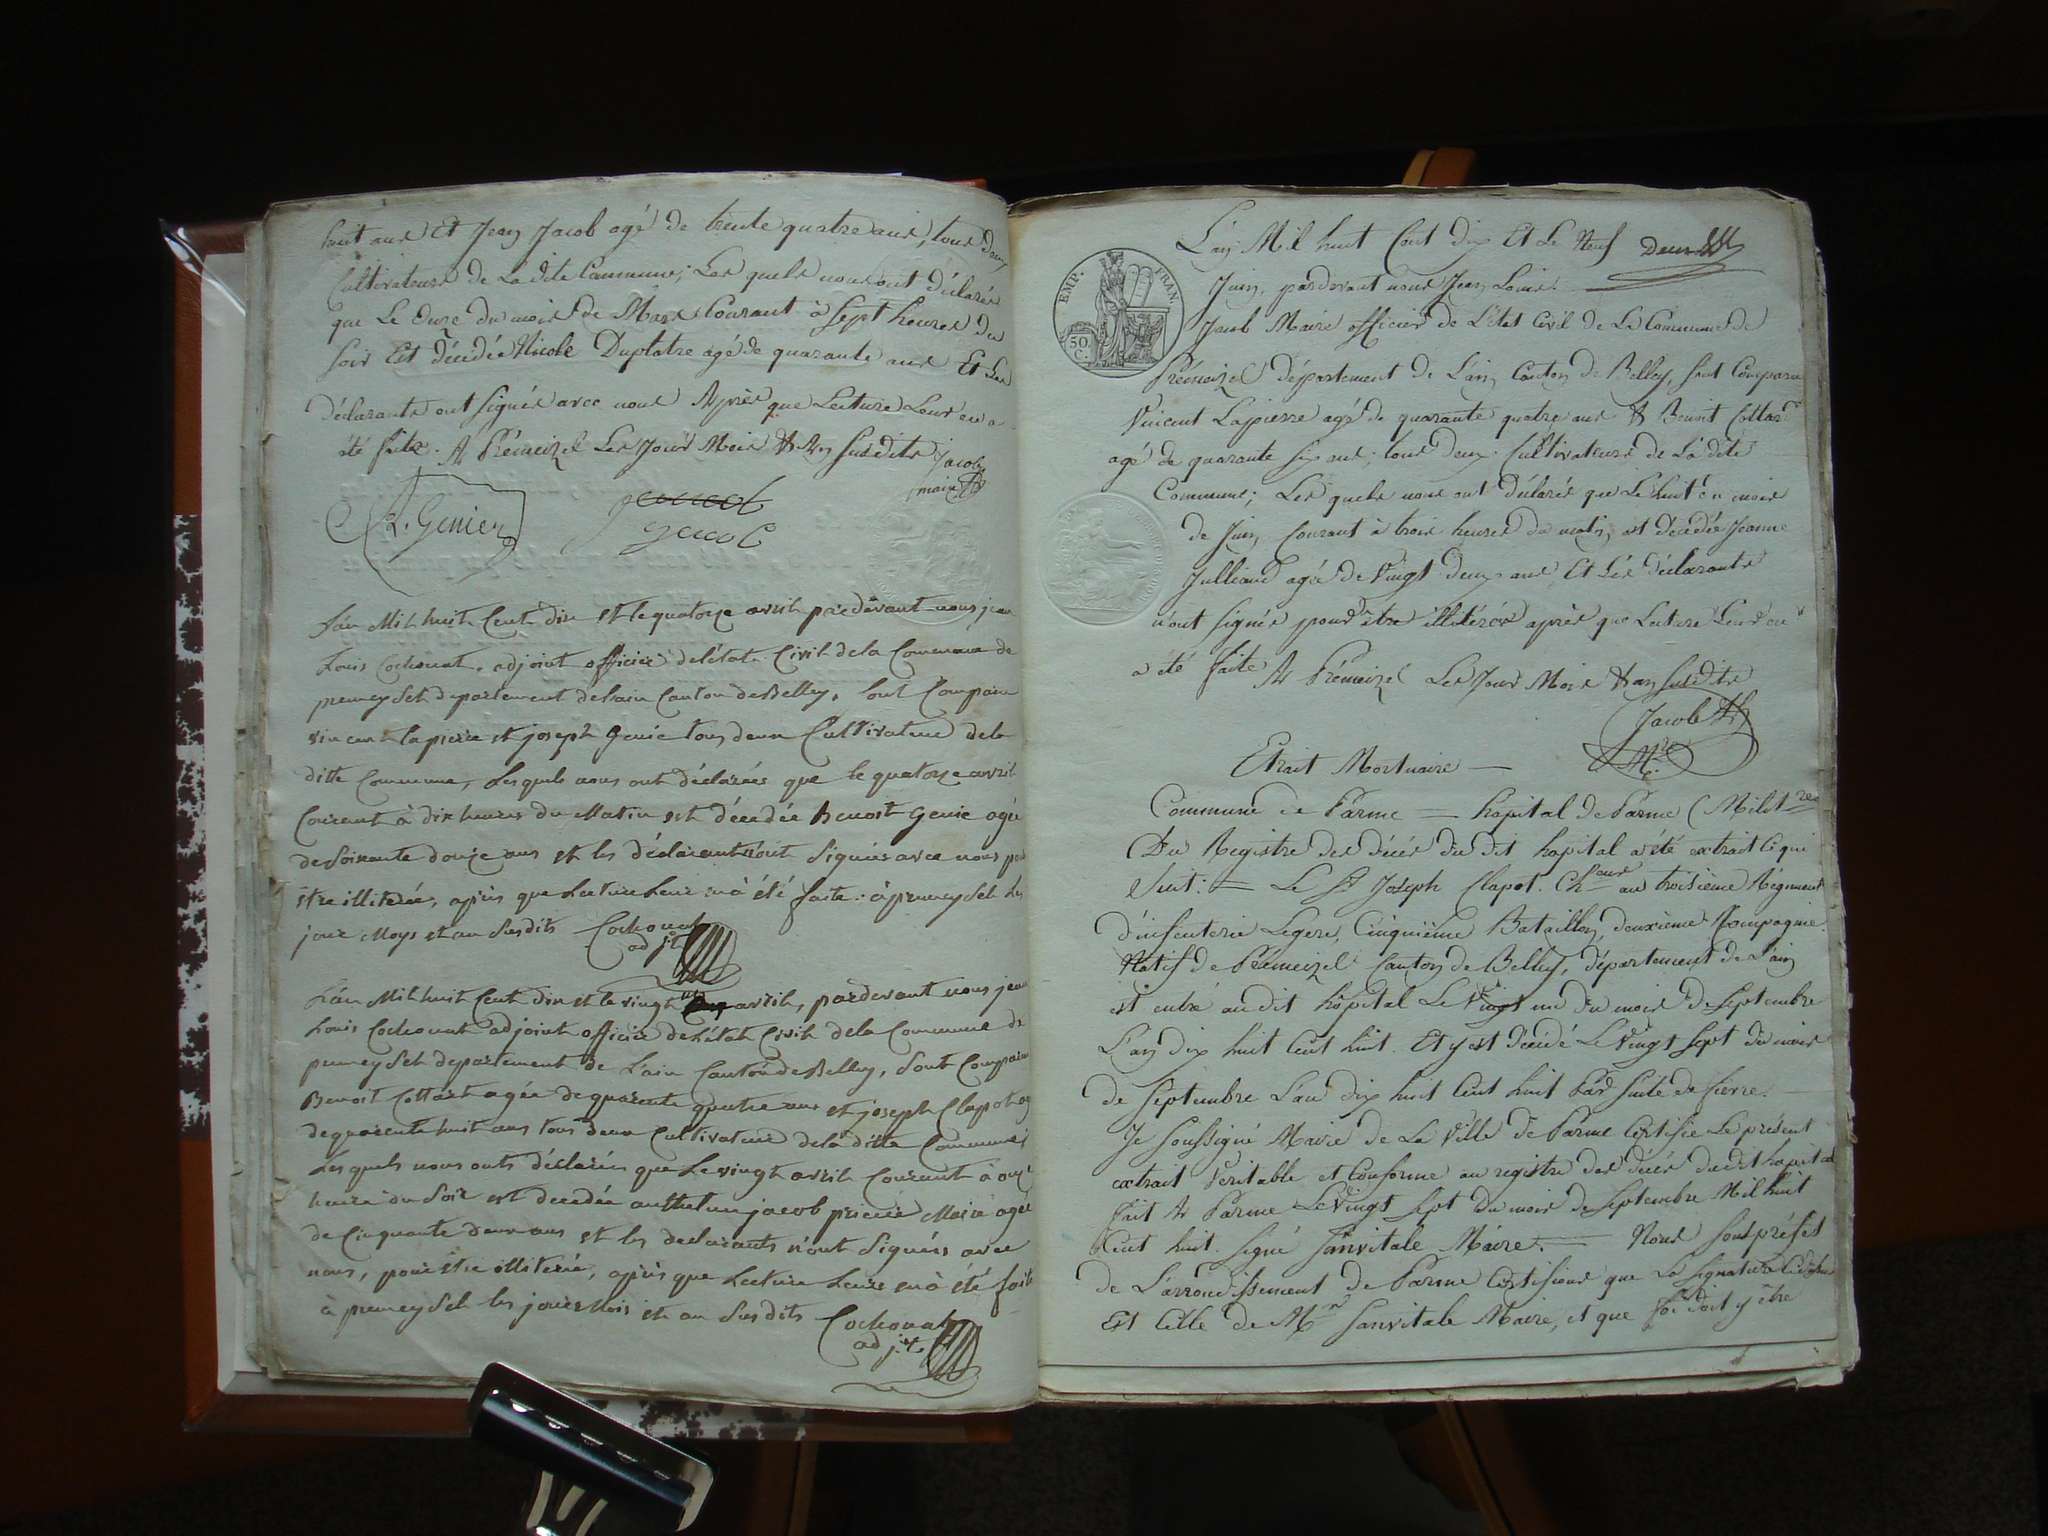 huit ans Et Jean Jacob agé de trente quatre ans, tous deux
Cultivateurs de La dite Commune; Les quels nous ont déclarés
que Le Onze du mois de Mars Courant à Sept heures du
soir Est décédée Nicole Duplatre agé de quarante ans Et Les
déclarants ont signés avec nous Après que Lecture Leur en a
été faite. A Prémeizel Les Jour Mois & An susdits Jacob
maire
L. Genier
Jacob
Jacob
L'an Mil huit Cent dix et le quatorze avril pardevant nous jean
Louis Cochonat, adjoint officier deletat Civil dela Commune de
premeysel departement delain Canton de Belley, sont Comparu
vincent lapierre et joseph Genie tous deux Cultivateur dela
ditte Commune, Lesquels nous ont déclarées que le quatorze avril
Courant à dix heures du Matin est décedée Benoit Genie agée
de Soixante douze ans et les déclarants n'ont Signées avec nous pour
être illiterée, après que Lecture Leur en à été faite: à premeysel Les
jour Moys et an Susdits Cochonat
adjt
L'an Mil huit Cent dix et le vingt un avril, pardevant nous jean
Louis Cochonat adjoint officier deletat Civil dela Commune de
premeysel departement de Lain Canton de Belley, Sont Comparu
Benoit Cottart agée de quarente quatre ans et joseph Clapot ag
de quarente huit ans tous deux Cultivateur dela ditte Commune;
Les quels nous onts déclarées que Le vingt avril Courant à onze
heure du Soir est decedée anthelme jacob Maire agée
de Cinquante deux ans et les declarants n'ont Signées avec
nous, pour être illiterée, après que Lecture Leure en à été faite
à premeysel les jour Mois et an Susdits Cochonat
adjt
L'an Mil huit Cent dix Et Le Neuf
Juin, pardevant nous Jean Louis
EMP. FRAN.
50. C.
Jacob Maire officier de L'état Civil de La Commune de
Prémeizel département de L'ain Canton de Belley, sont Comparu
Vincent Lapierre agé de quarante quatre ans & Benoit Cottard
agé de quarante six ans, tous deux Cultivateurs de La dite
Commune; Les quels nous ont déclarés que Le huit du mois
de Juin Courant à trois heures du matin est décédée Jeanne
Julliand agée de Vingt deux ans Et Les déclarants
n'ont signés pour être illitérés après que Lecture Leur en
a été faite A Prémeizel Les Jour Mois & an susdits
Jacob
Mre
Etrait Mortuaire —
Commune de Parme — hopital de Parme (Militre
Du Registre des décés du dit hopital a été extrait Ce qui
Suit: — Le Sr Joseph Clapot. Chseur au troisieme Régiment
d'infenterie Legere, Cinquième Bataillon, deuxième Compagnie.
Natif de Prémeizel Canton de Belley, département de L'ain
est entré au dit hôpital Le Vingt un du mois de Septembre
L'an dix huit Cent huit. Et y est décédé Le Vingt sept du mois
de Septembre L'an dix huit Cent huit Par Suite de fievre.
Je Soussigné Maire de La Ville de Parme Certifie Le présent
extrait Veritable et Conforme au registre des décés du dit hopital
fait A Parme Le Vingt sept du mois de Septembre Mil huit
Cent huit. signé Sanvitale Maire. — Nous Souspréfet
de L'arrondissement de Parme Certifions que La signature
Est Celle de Mr Sanvitale Maire, et que foi doit y être